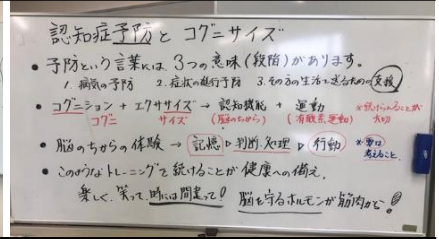 認知症予防と コグニサイズ
• 予防という言葉には 3つの意味(段階)があります。
1. 病気の予防 2. 症状の進行予防 3. その方の生活で送るための支援
• コグニション + エクササイズ → 認知機能 + 運動 ※続けられることが
コグニ サイズ (脳のちから) (有酸素運動) 大切
• 脳のちからの体験 → 記憶 ▷ 判断・処理 ▷ 行動 ※実は
考えること
• このようなトレーニングで続けることが 健康への備え.
楽しく、笑って、時には間違って! 脳を守るホルモンが筋肉から!